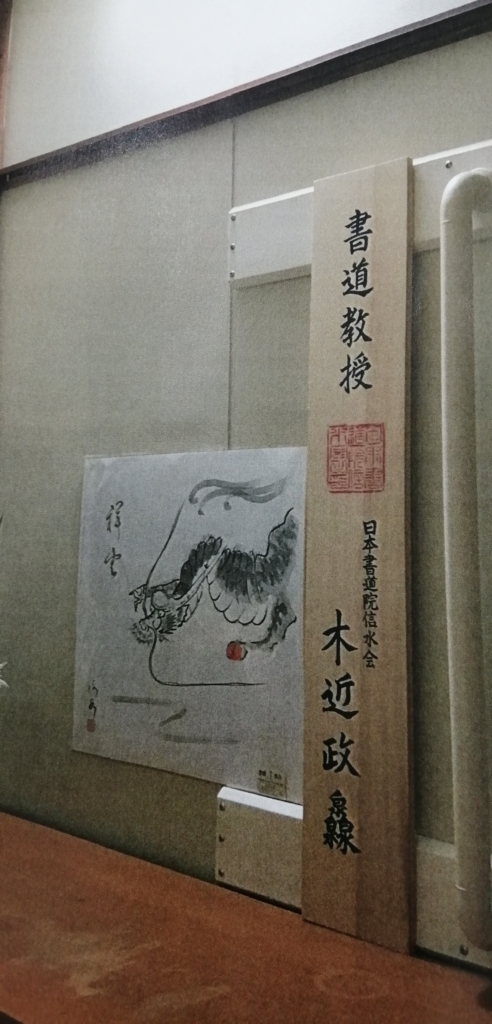 書道教授
日本書道院信水会
木近政
祥雲